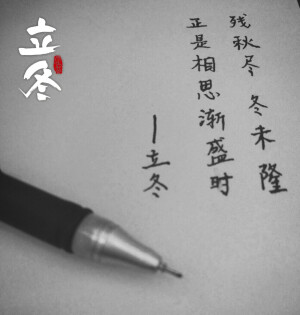 立冬
残秋尽 冬未隆
正是相思渐盛时
一立冬